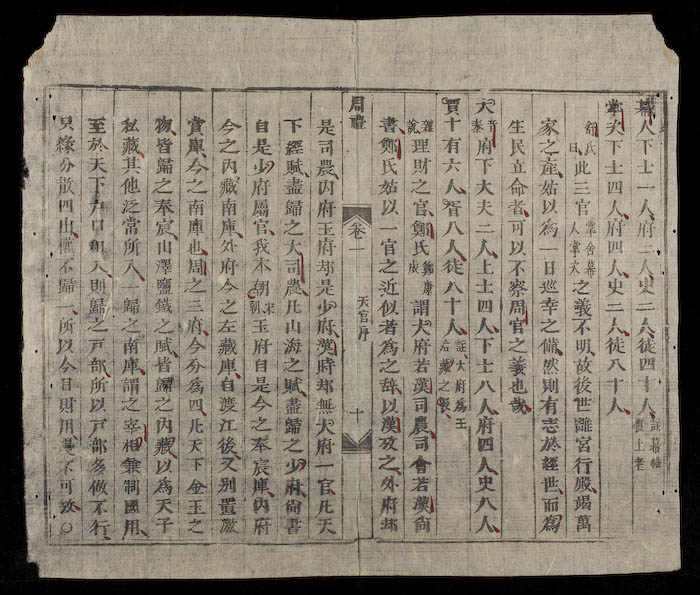 幕人下士一人府二人史二人徒四十人註幕帷覆上者
掌次下士四人府四人史二人徒八十人
鄭氏曰此三官掌舍幕人掌次之義不明故後世離宮行殿竭萬
家之產姑以為一日巡幸之備然則有志於經世而為
生民立命者可以不察周官之義也哉
大音泰府下大夫二人上士四人下士八人府四人史八人
賈十有六人胥八人徒八十人註大府為王治藏之長
理財之官鄭氏鄭康成謂大府若漢司農司會若漢尚
書鄭氏姑以一官之近似者為之辞以漢攷之外府却
周禮 卷一 天官序 十
是司農內府玉府却是少府漢時却無大府一官凡天
下經賦盡歸之大司農凡山海之賦盡歸之少府尚書
自是少府屬官我本朝宋朝玉府自是今之奉宸庫內府
今之內藏南庫外府今之左藏庫自渡江後又別置激
賞庫今之南庫也周之三府今分為四凡天下金玉之
物皆歸之奉宸山澤鹽鐵之賦皆歸之內藏以為天子
私藏其他泛當所入一歸之南庫謂之宰相兼制國用
至於天下戶口租入則歸之戸部所以戸部多做不行
只緣分散四出權不歸一所以今日財用漫不可攷○